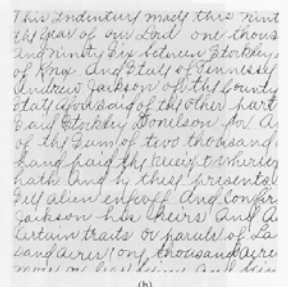 This Indenture made this nint
the year of our Lord one thous
and ninety six between Stockley
of Knox And State of Tennessee
Andrew Jackson of the County
State aforesaid of the other part
said Stockley Donelson for A
of the Sum of two thousand
hand paid the receipt where
hath And by these presents
Sell alien enfeoff And Confir
Jackson his heirs and A
Certain tracts or parcels of La
Land Acres one thousand Acre
(b)